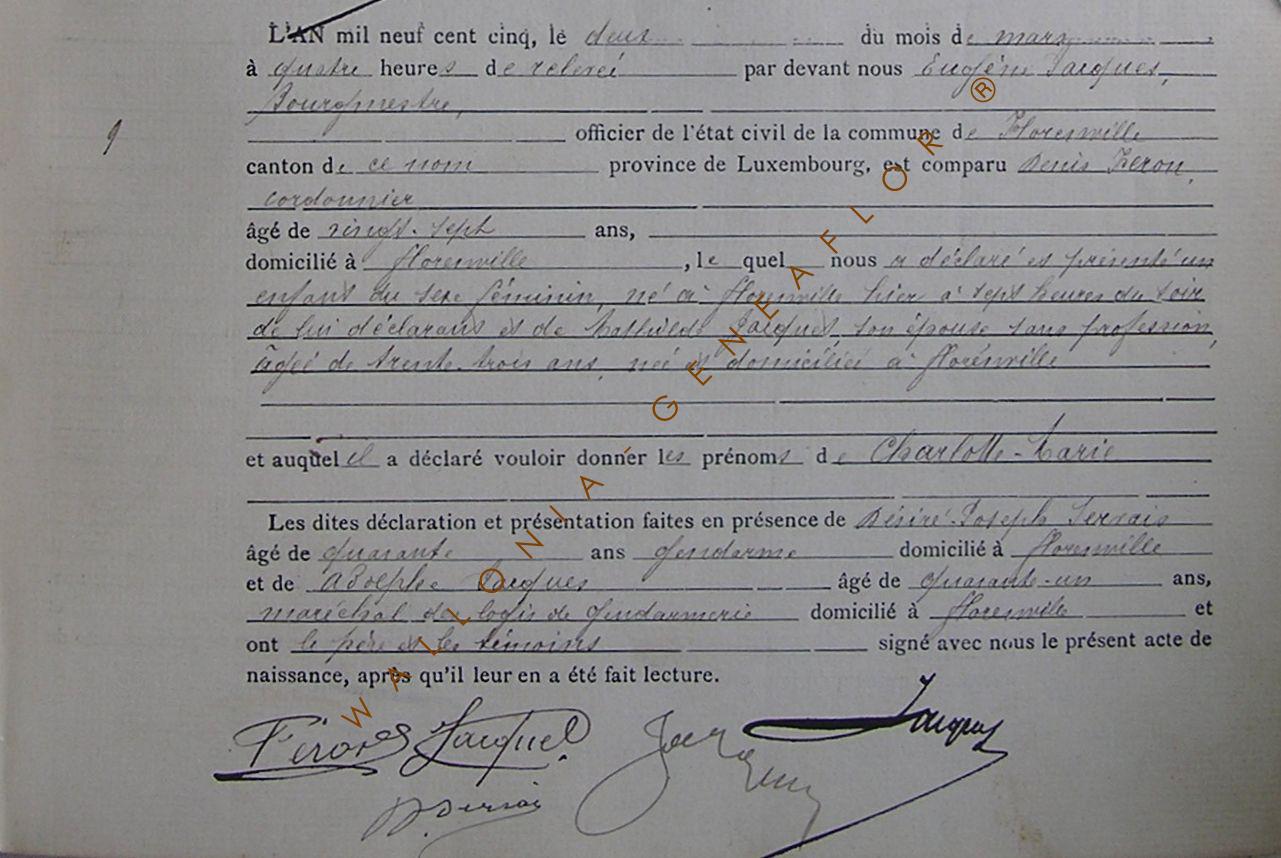 L'AN mil neuf cent cinq, le deux du mois de mars
à quatre heures de relevée par devant nous Eugène Jacques,
Bourgmestre,
officier de l'état civil de la commune de Florenville
9
canton de ce nom province de Luxembourg, est comparu Denis Féron,
cordonnier
âgé de vingt-sept ans,
domicilié à Florenville, le quel nous a déclaré et présenté un
enfant du sexe féminin, né à Florenville hier à sept heures du soir
de lui déclarant et de Mathilde Jacques, son épouse sans profession,
âgée de trente-trois ans, née et domiciliée à Florenville
et auquel il a déclaré vouloir donner les prénoms de Charlotte-Marie
Les dites déclaration et présentation faites en présence de Désiré-Joseph Servais
âgé de quarante ans gendarme domicilié à Florenville
et de Adolphe Jacques âgé de quarante-un ans,
maréchal des logis de gendarmerie domicilié à Florenville et
ont le père et les témoins signé avec nous le présent acte de
naissance, après qu'il leur en a été fait lecture.
Féron Jacques Jacques
Servais
WALLONIA GENEAFLOR ®